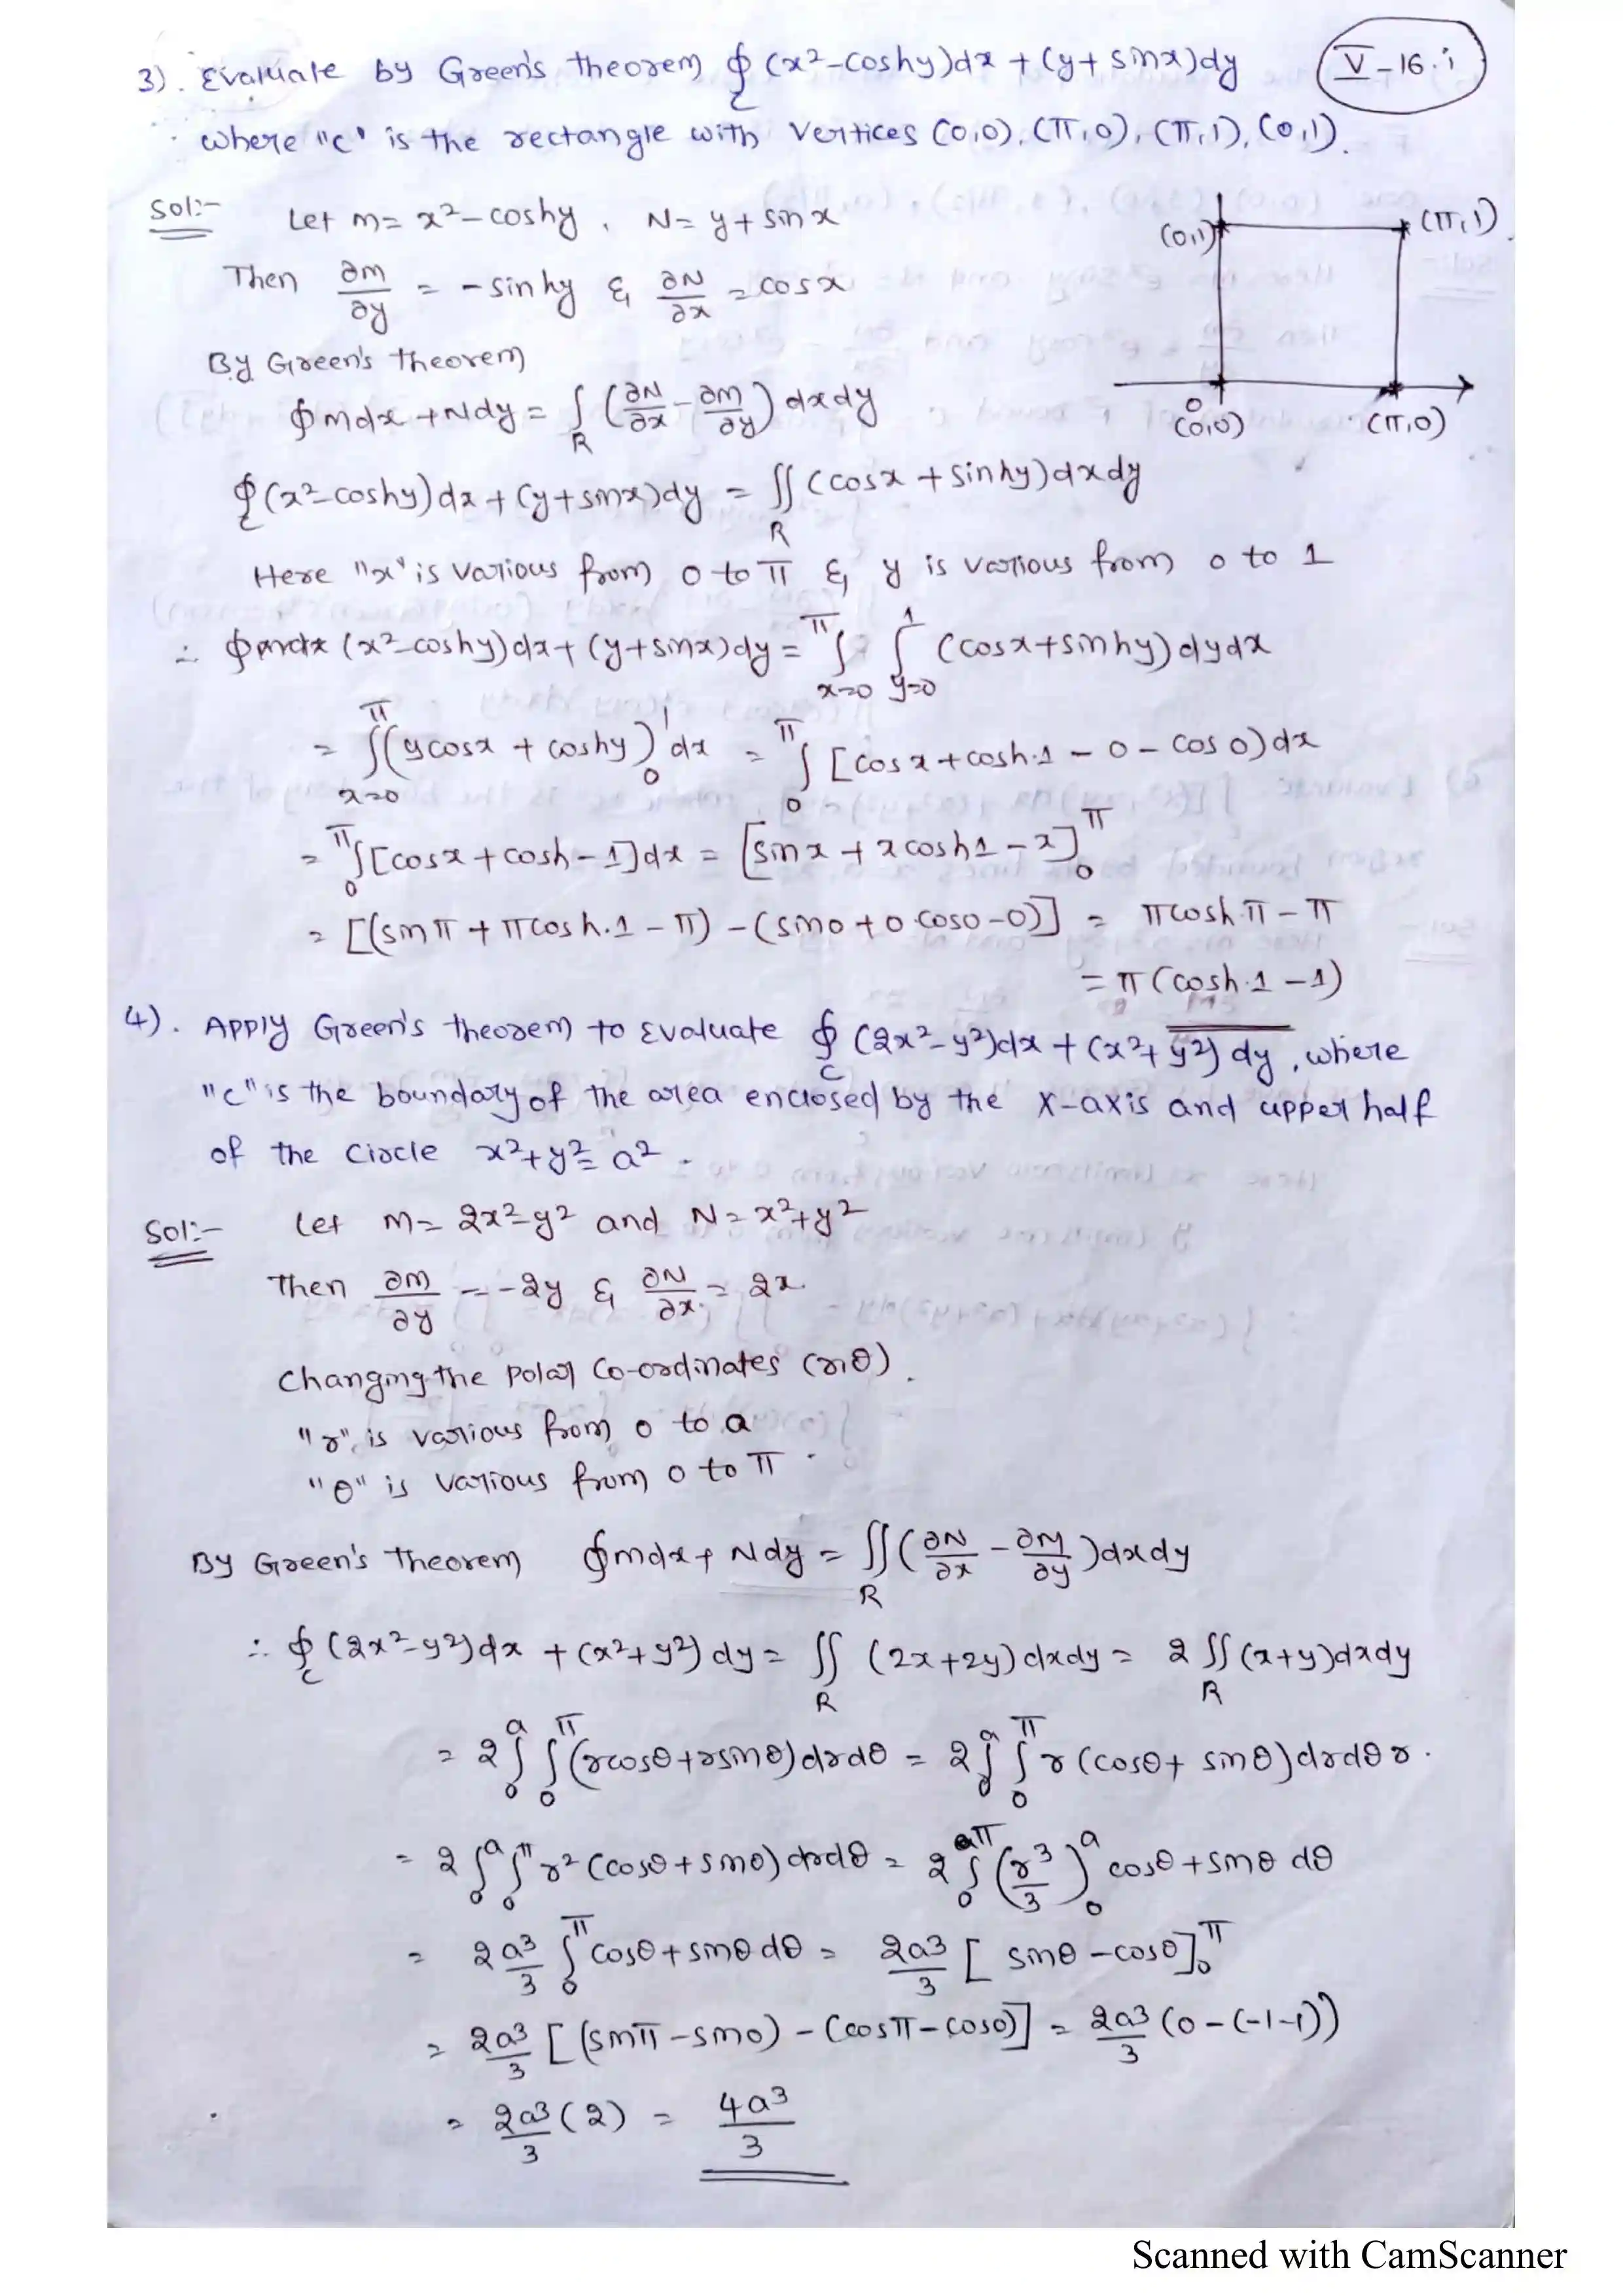 3). Evaluate by Green's theorem ∮_C (x²-coshy)dx + (y+sinx)dy
V-16.i
where "c" is the rectangle with vertices (0,0), (π,0), (π,1), (0,1).
Sol:- Let m = x²-coshy, N = y+sinx
Then ∂m/∂y = -sinhy & ∂N/∂x = cosx
By Green's theorem
∮mdx+Ndy = ∫_R (∂N/∂x - ∂m/∂y) dxdy
(0,1) (π,1)
0 (0,0) (π,0)
∮_C (x²-coshy)dx + (y+sinx)dy = ∬_R (cosx+sinhy)dxdy
Here "x" is various from 0 to π & y is various from 0 to 1
∴ ∮ (x²-coshy)dx + (y+sinx)dy = ∫_{x=0}^{π} ∫_{y=0}^{1} (cosx+sinhy)dydx
= ∫_{x=0}^{π} (ycosx + coshy)_0^1 dx = ∫_0^π [cosx+cosh.1 - 0 - cos0)dx
= ∫_0^π [cosx+cosh-1]dx = [sinx + xcosh1 - x]_0^π
= [(sinπ + πcosh.1 - π) - (sin0+0.cos0-0)] = πcosh.π - π
= π(cosh.1 - 1)
4). Apply Green's theorem to Evaluate ∮_C (2x²-y²)dx + (x²+y²)dy, where
"c" is the boundary of the area enclosed by the x-axis and upper half
of the circle x²+y² = a².
Sol:- Let m = 2x²-y² and N = x²+y²
Then ∂m/∂y = -2y & ∂N/∂x = 2x.
Changing the polar co-ordinates (r,θ).
"r" is various from 0 to a
"θ" is various from 0 to π.
By Green's theorem ∮mdx + Ndy = ∬_R (∂N/∂x - ∂M/∂y)dxdy
∴ ∮_C (2x²-y²)dx + (x²+y²)dy = ∬_R (2x+2y)dxdy = 2∬_R (x+y)dxdy
= 2∫_0^a ∫_0^π (rcosθ+rsinθ)drdθ = 2∫_0^a ∫_0^π r(cosθ+sinθ)drdθ r.
= 2∫_0^a ∫_0^π r²(cosθ+sinθ)drdθ = 2∫_0^π (r³/3)_0^a cosθ+sinθ dθ
= 2a³/3 ∫_0^π cosθ+sinθdθ = 2a³/3 [sinθ-cosθ]_0^π
= 2a³/3 [(sinπ-sin0) - (cosπ-cos0)] = 2a³/3 (0-(-1-1))
= 2a³/3 (2) = 4a³/3
Scanned with CamScanner